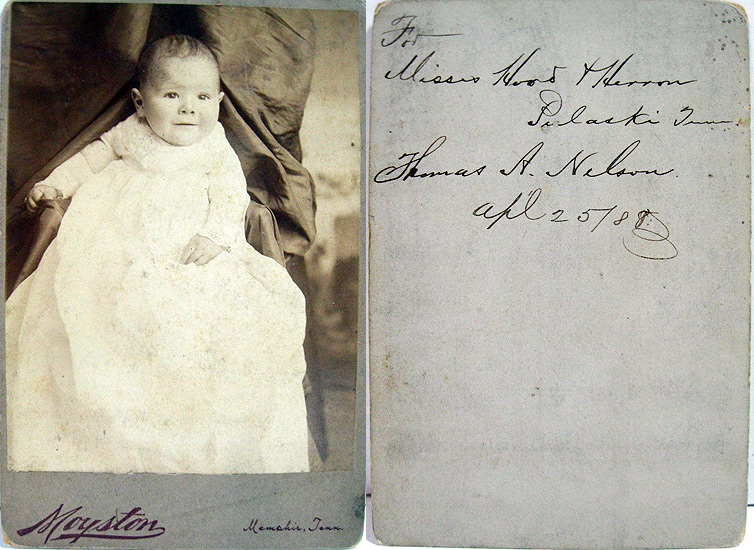 Moyston
Memphis, Tenn.
For
Misses Hood & Herron
Pulaski Tenn.
Thomas A. Nelson.
Apl 25/88.